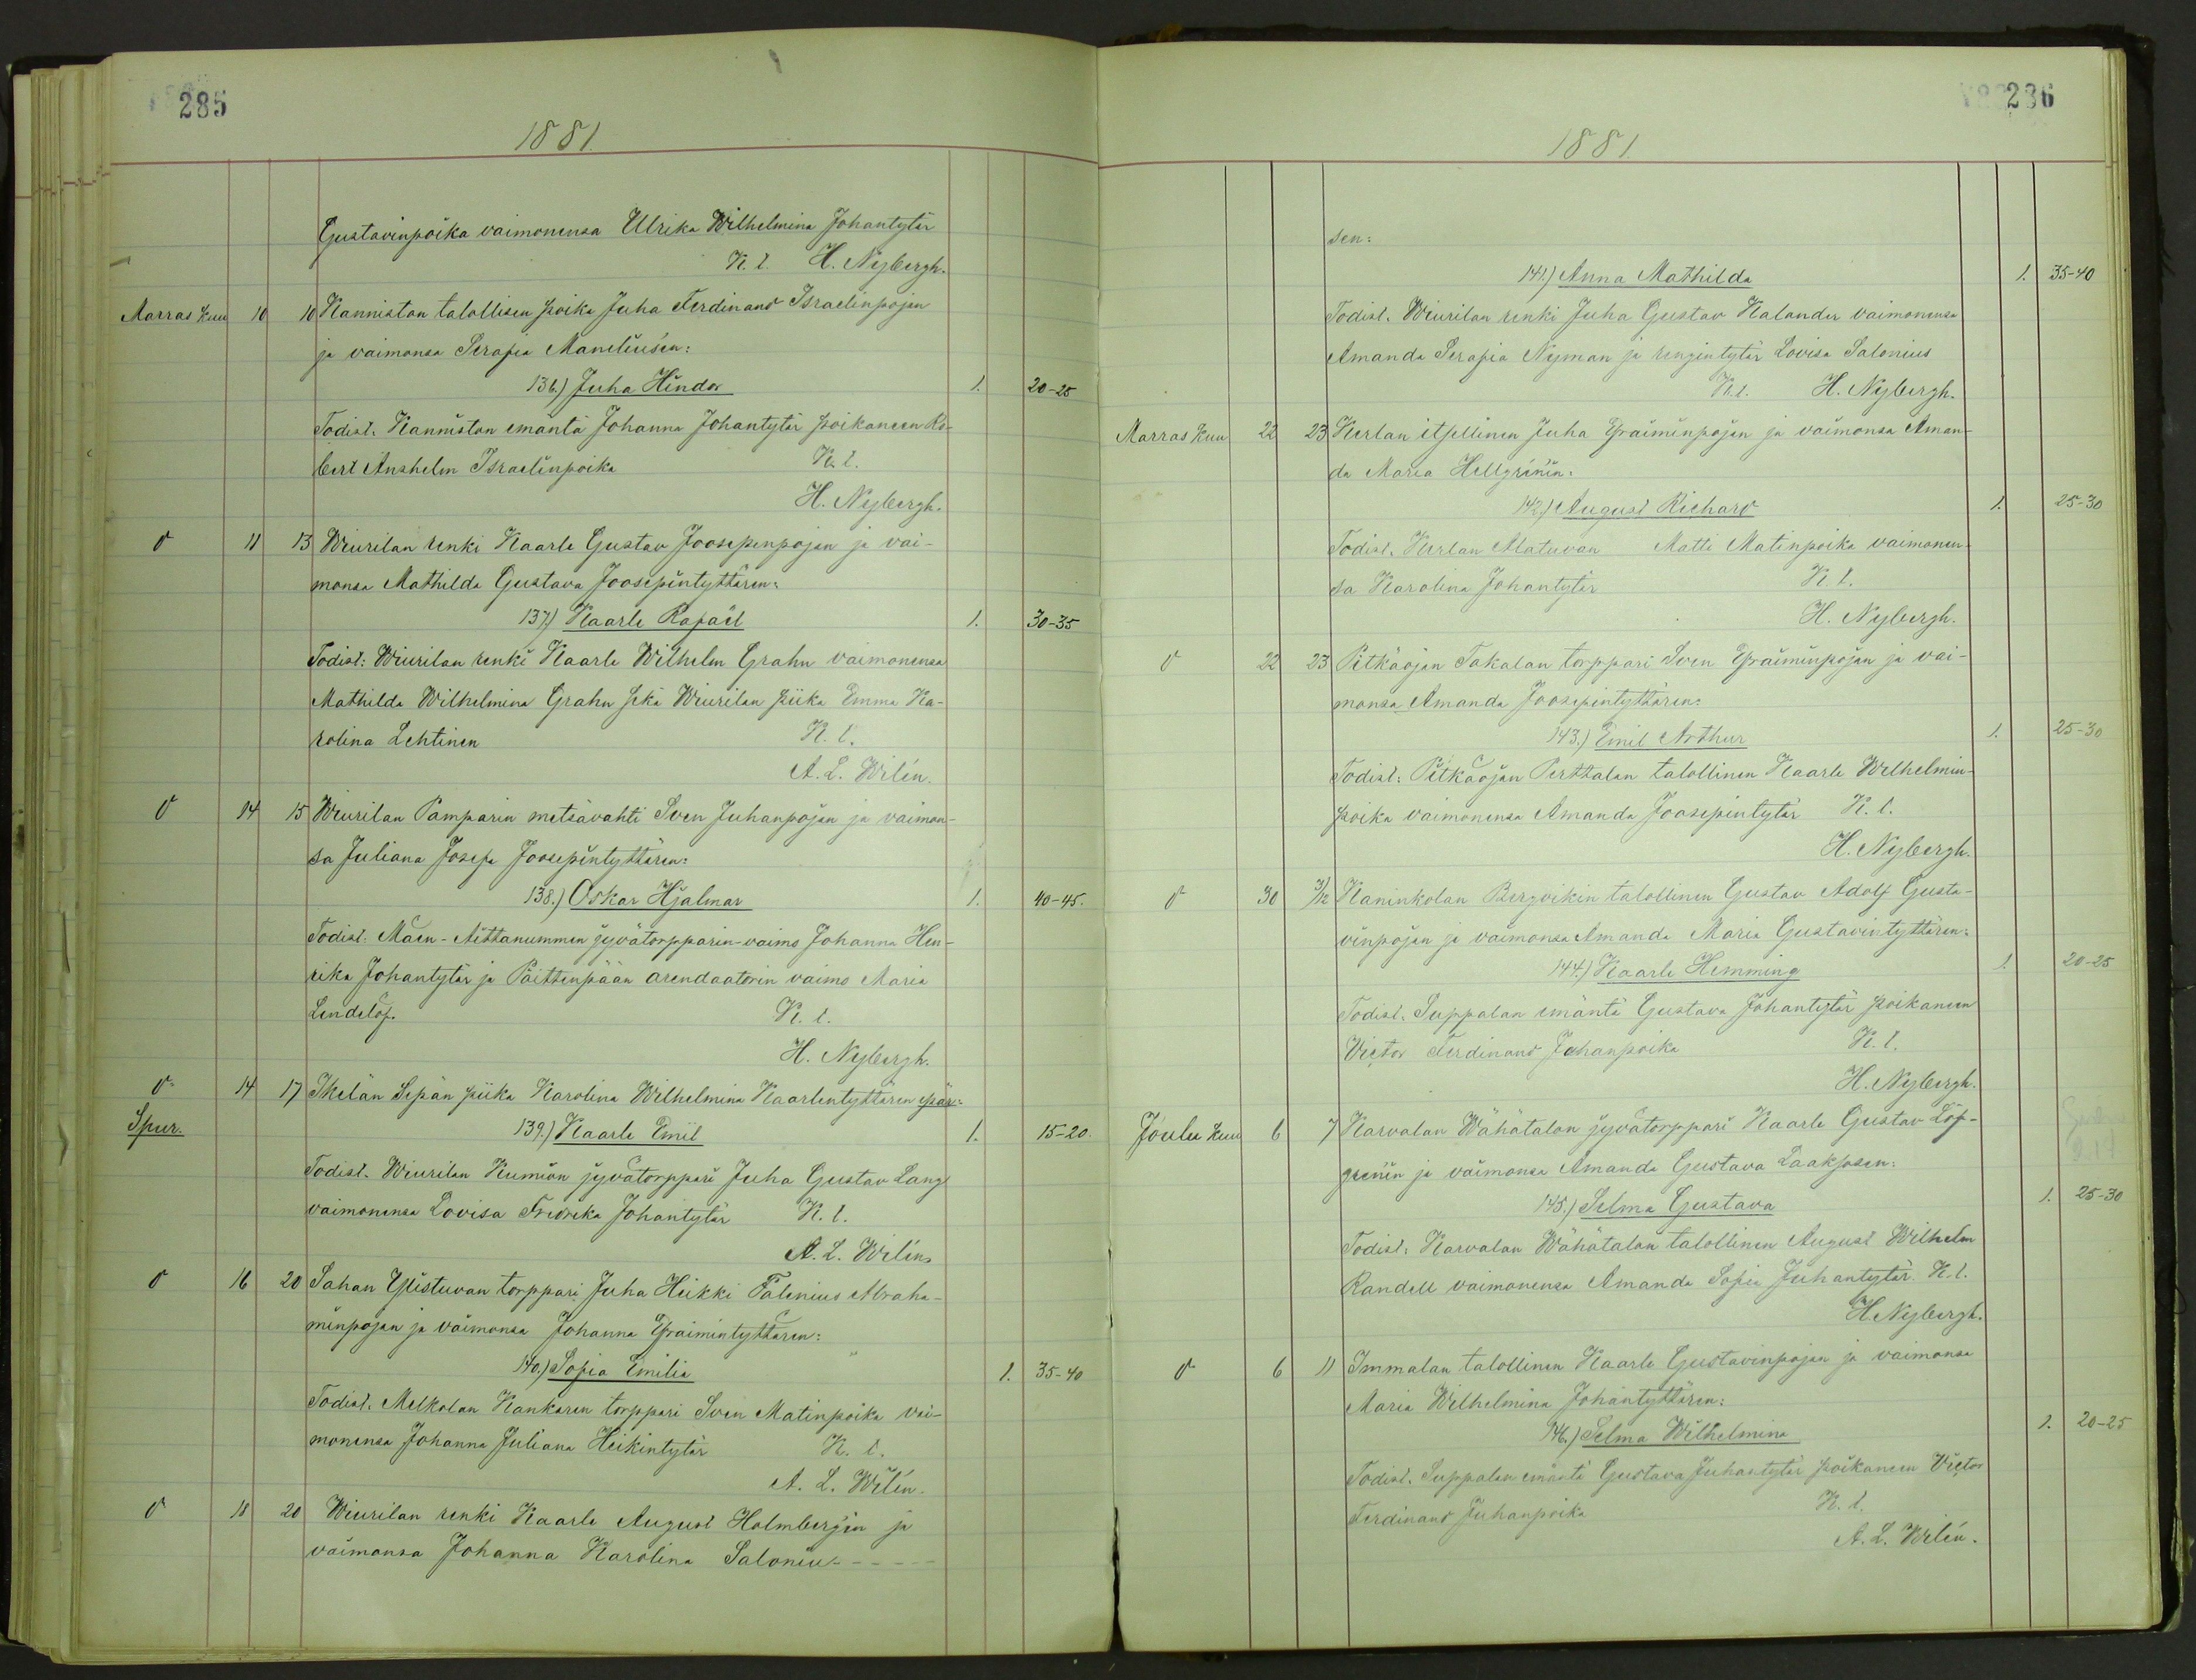 285
1881.
Gustavinpoika vaimonensa Ulrika Wilhelmina Johantytär
K. l. H. Nybergh.
Marras Kuu 10 10 Kanniston talollisen poika Juha Ferdinand Israelinpojan
ja vaimonsa Serafia Maneliusen:
136.) Juha Hindor 1. 20-25
Todist. Kanniston emäntä Johanna Johantytär poikaneen Ro-
bert Anshelm Israelinpoika K. l.
H. Nybergh.
" 11 13 Wiurilan renki Kaarle Gustav Joosepinpojan ja vai-
monsa Mathilda Gustava Joosepintyttären:
137.) Kaarle Rafael 1. 30-35
Todist: Wiurilan renki Kaarle Wilhelm Grahn vaimonensa
Mathilda Wilhelmina Grahn sekä Wiurilan piika Emma Ka-
rolina Lehtinen K. l.
A. L. Wilén.
" 14 15 Wiurilan Pamparin metsävahti Sven Juhanpojan ja vaimon-
sa Juliana Josefa Joosepintyttären:
138.) Oskar Hjalmar 1. 40-45.
Todist. Mäen-Aittanummen jyvätorpparin-vaimo Johanna Hen-
rika Johantytär ja Päittenpään arendaatorin vaimo Maria
Lendelöf. K. l.
H. Nybergh.
" 14 17 Ikelän Sepän piika Karolina Wilhelmina Kaarlentyttären epär:
Spur. 139.) Kaarle Emil 1. 15-20.
Todist. Wiurilan Kumion jyvätorppari Juha Gustav Lang
vaimonensa Lovisa Fredrika Johantytär K. l.
A. L. Wilén.
" 16 20 Sahan Ylistuvan torppari Juha Heikki Falenius Abraha-
minpojan ja vaimonsa Johanna Efraimintyttären:
140.) Sofia Emilia 1. 35-40
Todist. Melkolan Kankaren torppari Sven Matinpoika vai-
monensa Johanna Juliana Heikintytär K. l.
A. L. Wilén.
" 18 20 Wiurilan renki Kaarle August Holmbergin ja
vaimonsa Johanna Karolina Saloniu------
286
1881.
sen:
141.) Anna Mathilda 1. 35-40
Todist. Wiurilan renki Juha Gustav Kalander vaimonensa
Amanda Serafia Nyman ja rengintytär Lovisa Salonius
K. l. H. Nybergh.
Marras Kuu 22 23 Kerlan itsellinen Juha Efraiminpojan ja vaimonsa Aman-
da Maria Hellgrénin:
142.) August Richard 1. 25-30
Todist. Kerlan Alatuvan Matti Matinpoika vaimonen-
sa Karolina Johantytär K. l.
H. Nybergh.
" 22 23 Pitkäojan Takalan torppari Sven Efraiminpojan ja vai-
monsa Amanda Joosepintyttären:
143.) Emil Arthur 1. 25-30
Todist: Pitkäojan Perttalan talollinen Kaarle Wilhelmin-
poika vaimonensa Amanda Joosepintytär K. l.
H. Nybergh.
" 30 3/12 Kaninkolan Bergvikin talollinen Gustav Adolf Gusta-
vinpojan ja vaimonsa Amanda Maria Gustavintyttären:
144.) Kaarle Hemming 1. 20-25
Todist. Suppalan emäntä Gustava Johantytär poikaneen
Victor Ferdinand Johanpoika K. l.
H. Nybergh.
Joulu Kuu 6 7 Karvalan Wähätalon jyvätorppari Kaarle Gustav Löf-
grenin ja vaimonsa Amanda Gustava Laaksosen:
145.) Selma Gustava 1. 25-30
Todist: Karvalan Wähätalon talollinen August Wilhelm
Randell vaimonensa Amanda Sofia Juhantytär K. l.
H. Nybergh.
" 6 11 Immalan talollinen Kaarle Gustavinpojan ja vaimonsa
Maria Wilhelmina Johantyttären:
146.) Selma Wilhelmina 1. 20-25
Todist. Suppalan emäntä Gustava Juhantytär poikaneen Victor
Ferdinand Juhanpoika K. l.
A. L. Wilén.